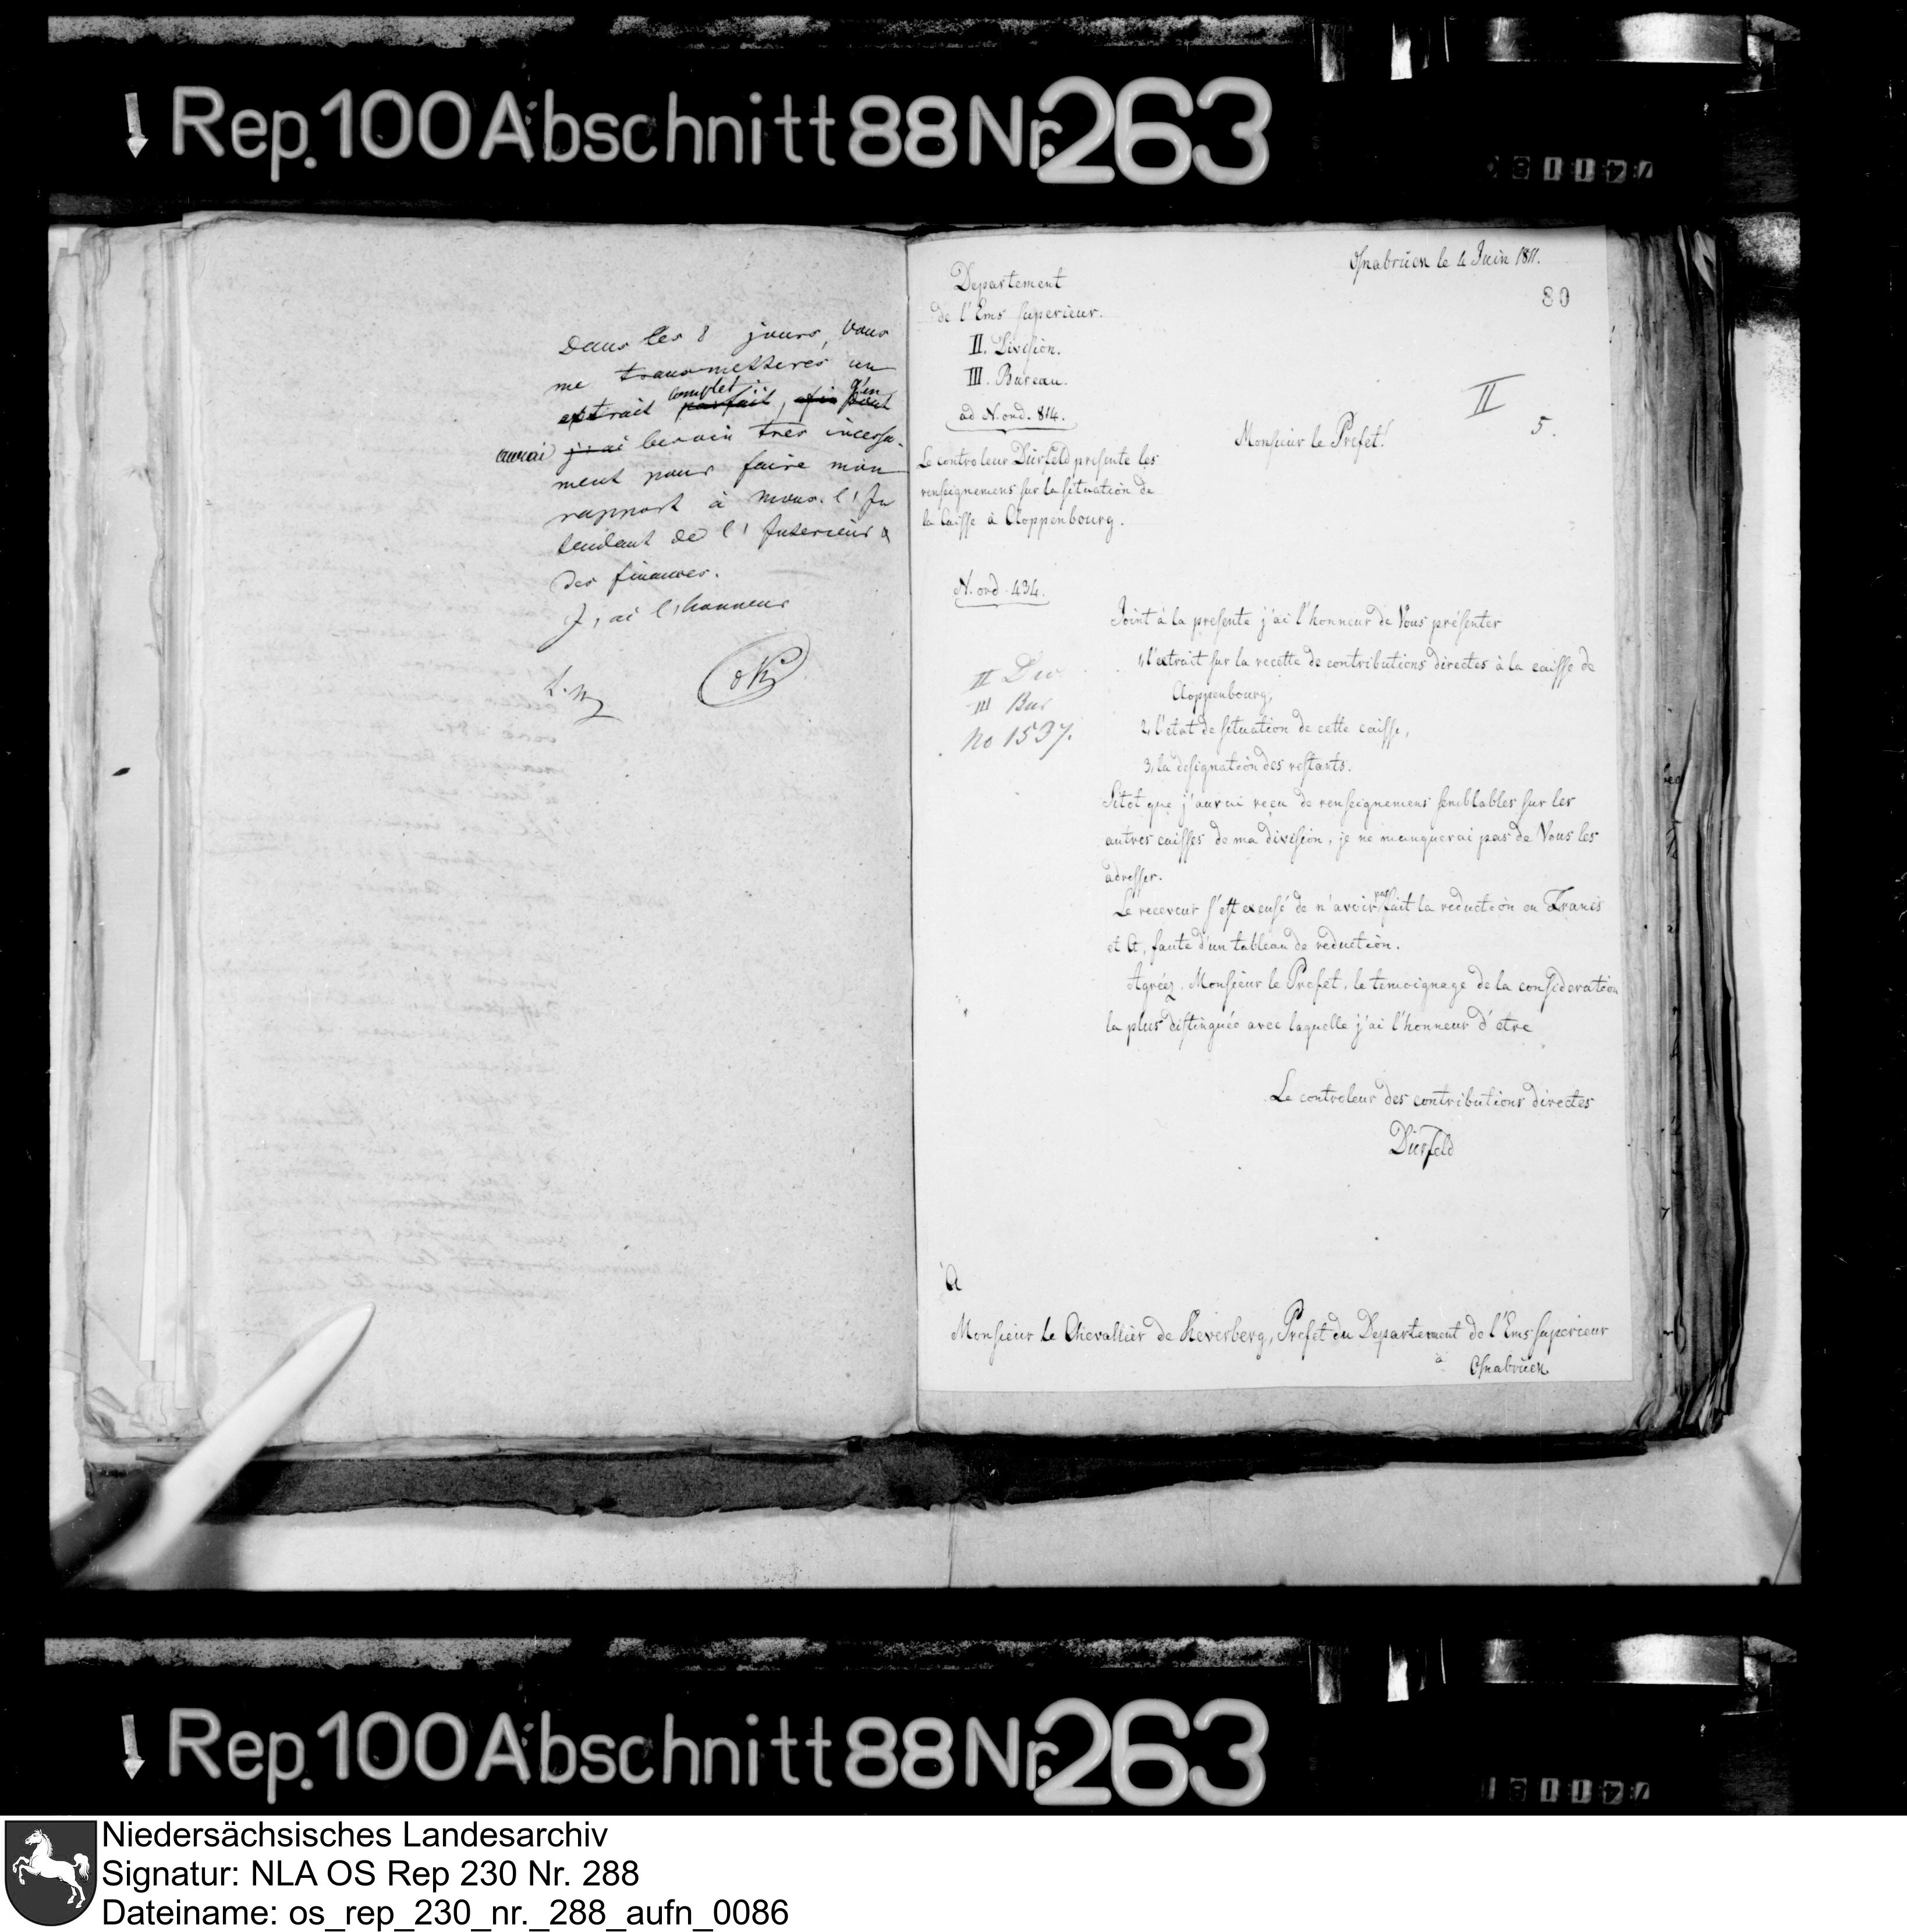 Rep. 100 Abschnitt 88 Nr. 263
Dans les 8 jours, Vous
me transmetteres un
extrait parfait, complet
d'en
aurai j'ai besoin tres incessa-
ment pour faire mon
rapport à Mons. l'In
tendant de l'Interieur &
des finances.
J'ai l'honneur
Osnabrück le 4 Juin 1811.
80
Departement
de l'Ems superieur.
II. Division.
III. Bureau.
ad N. ord. 814.
II
5.
Monsieur le Prefet!
Le controleur Dürfeld presente les
renseignemens sur la situation de
la Caisse à Cloppenbourg.
N. ord. 434.
II Div
III Bur
No 1537.
Joint à la presente j'ai l'honneur de Vous présenter
1, l'extrait sur la recette de contributions directes à la caisse de
Cloppenbourg,
2, l'etat de situation de cette caisse,
3, la designation des restants.
Sitot que j'aurai reçu de renseignemens semblables sur les
autres caisses de ma division, je ne manquerai pas de Vous les
adresser.
Le receveur s'est excusé de n'avoir pas fait la reduction en Francs
et Ct, faute d'un tableau de reduction.
Agréez, Monsieur le Prefet, le temoignage de la consideration
la plus distinguée avec laquelle j'ai l'honneur d'etre
Le controleur des contributions directes
Dürfeld
A
Monsieur Le Chevallier de Keverberg, Prefet du Departement de l'Ems superieur
à
Osnabrück
Rep. 100 Abschnitt 88 Nr. 263
Niedersächsisches Landesarchiv
Signatur: NLA OS Rep 230 Nr. 288
Dateiname: os_rep_230_nr._288_aufn_0086